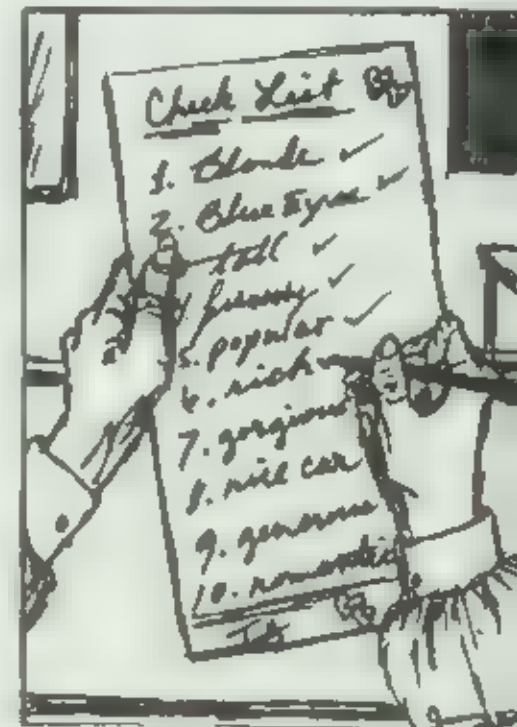 Check List
1. Blonde ✓
2. Blue Eyes ✓
tall ✓
funny ✓
5. popular ✓
6. rich
7. gorgious
8. nice car
9. generous
10. romantic